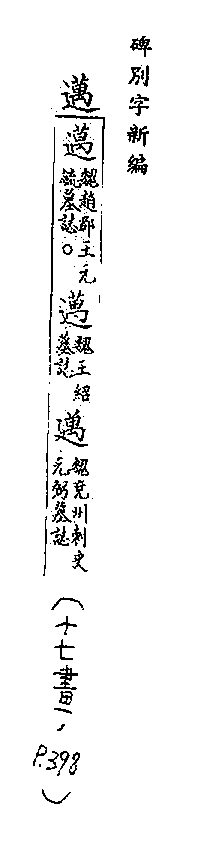 碑別字新編
邁
邁 魏趙郡王元毓墓誌。
邁 魏王紹墓誌
邁 魏兗州刺史元弼墓誌
(十七畫, P.398)